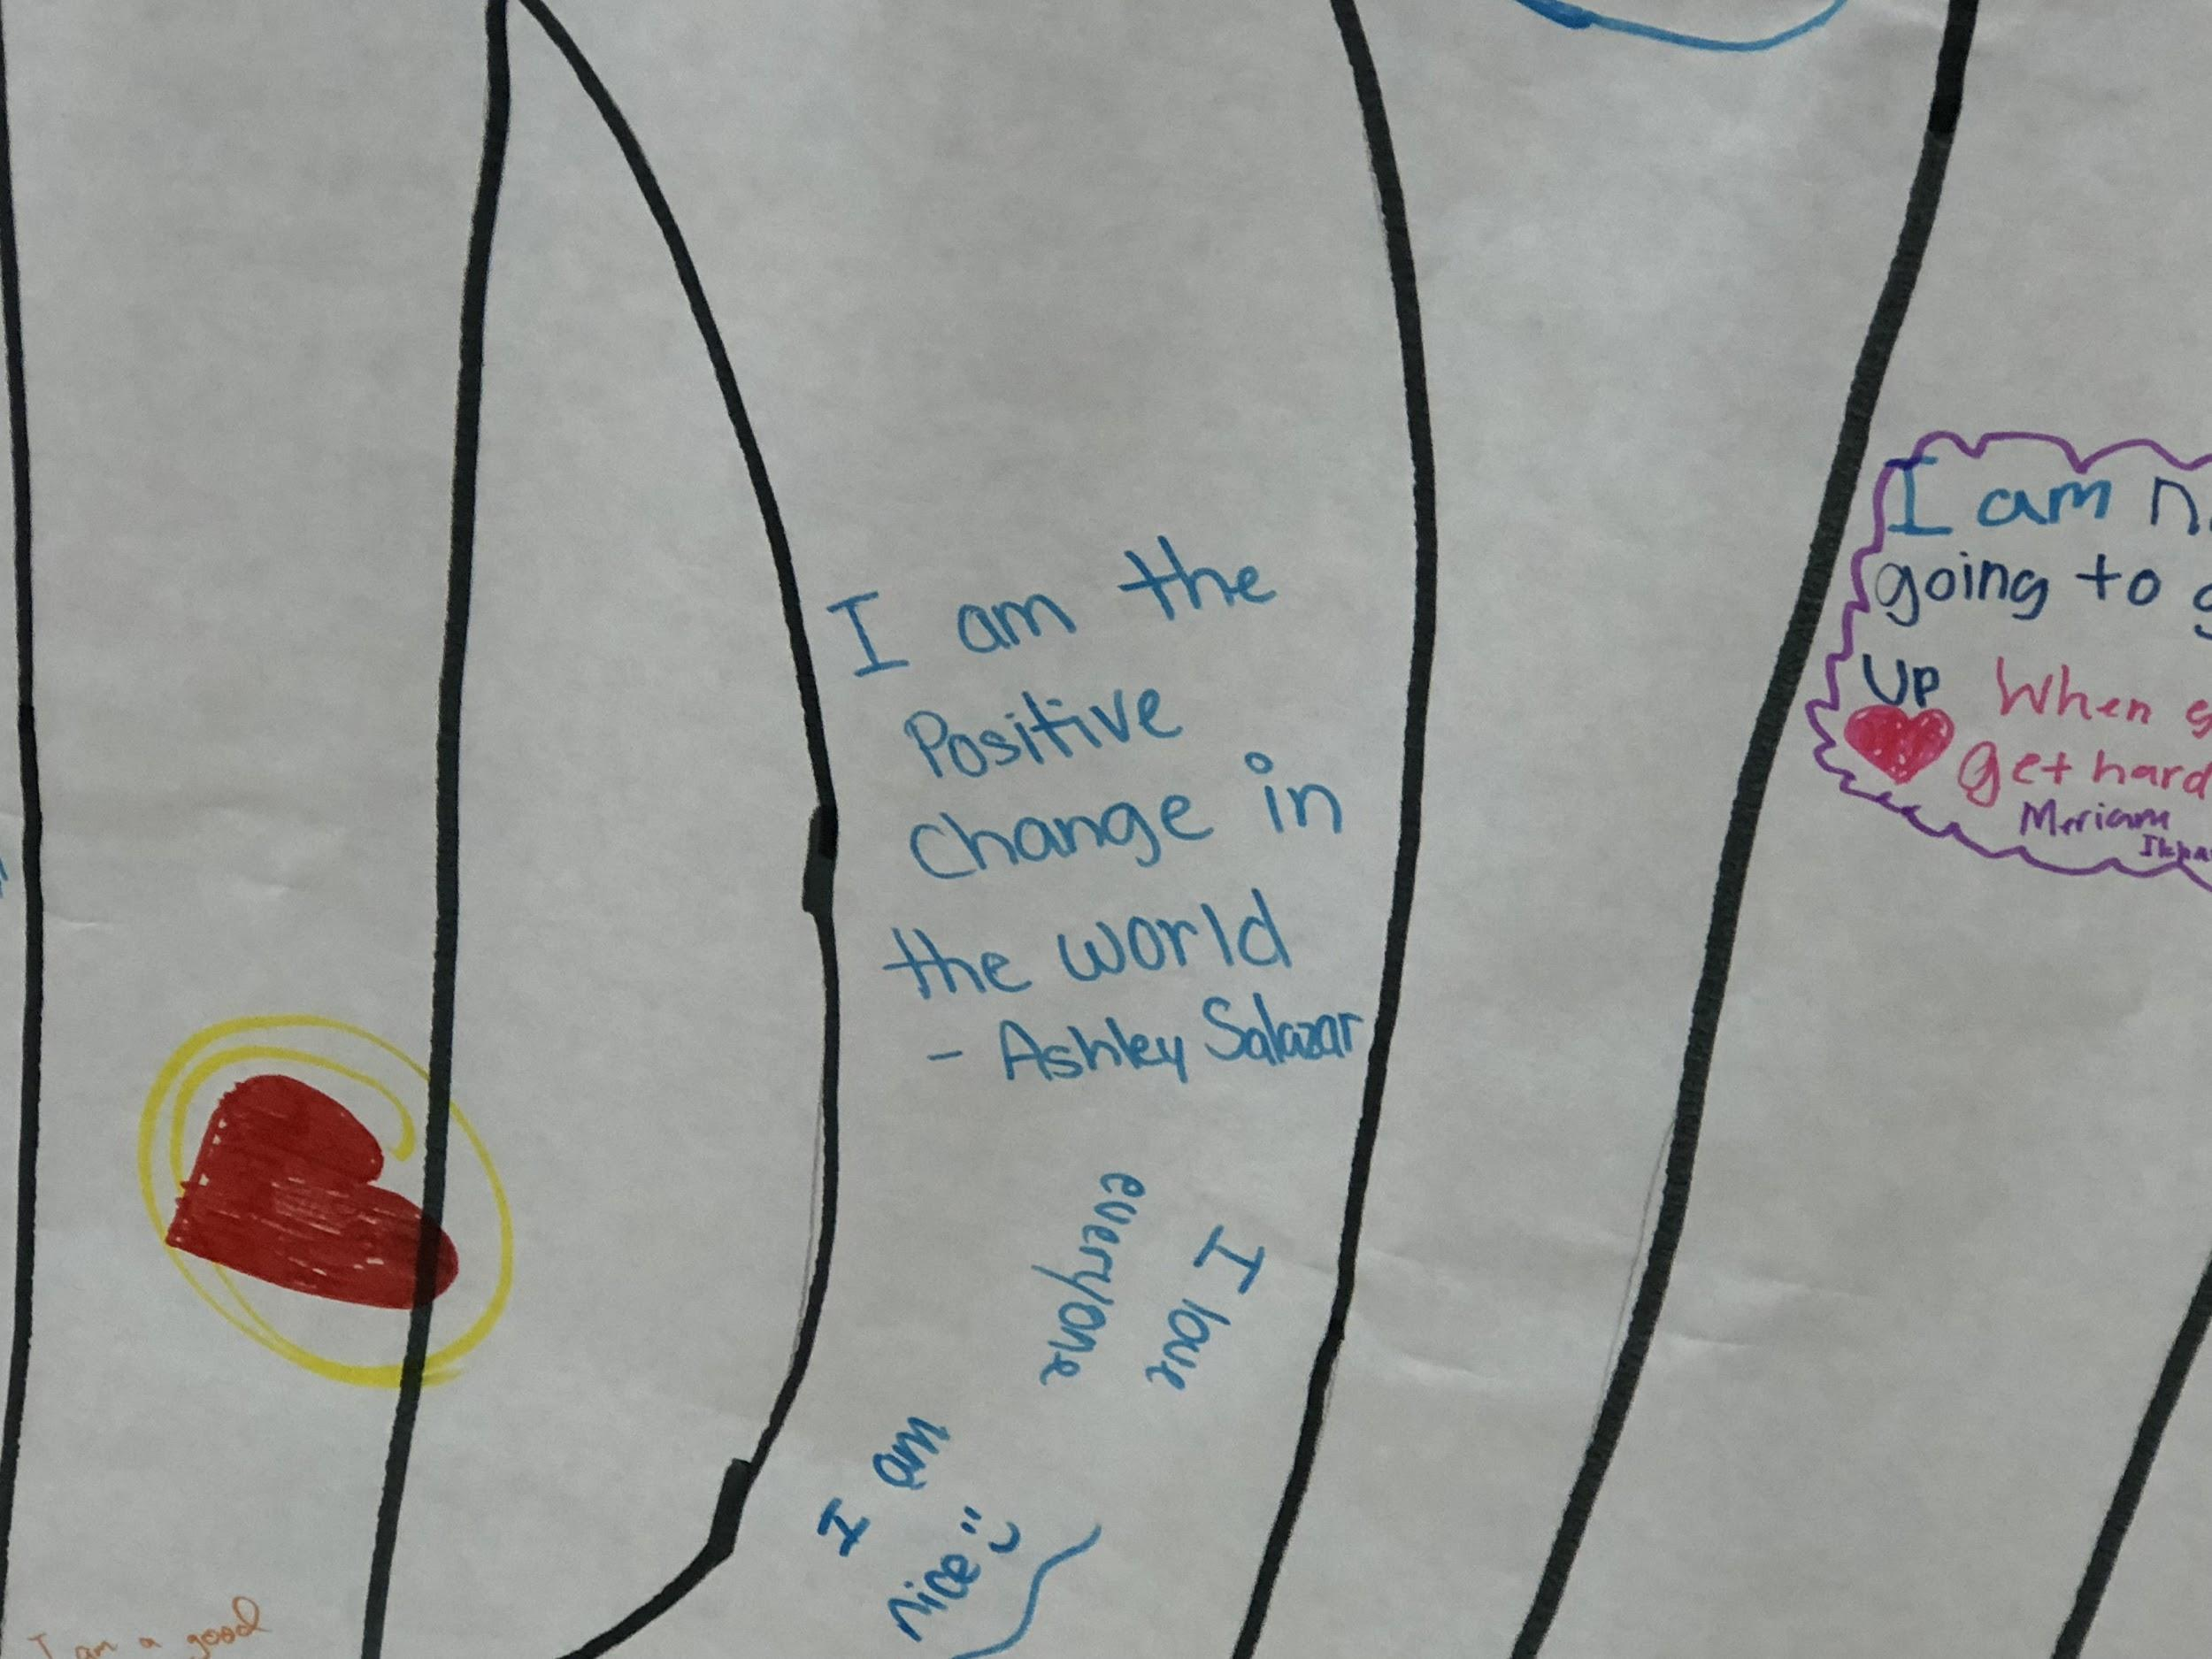 I am the
Positive
change in
the world
- Ashley Salazar
I love
everyone
I am
nice
I am
going to
UP When
get hard
Meriam
I am a good